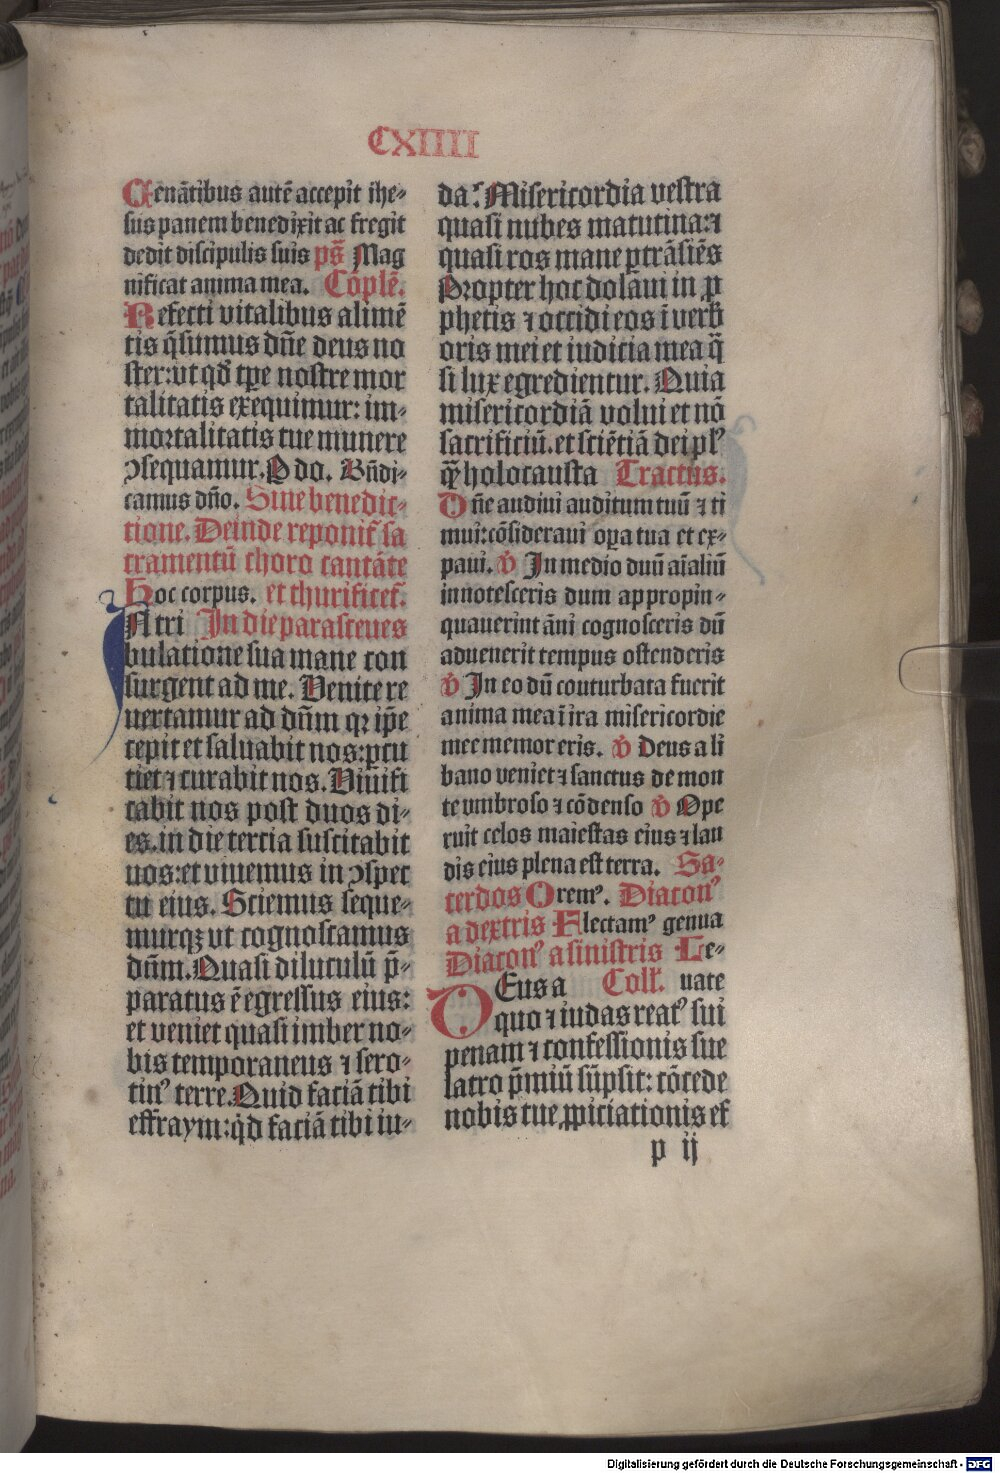 CXIIII
Cenãtibus autẽ accepit ihe-
sus panem benedixit ac fregit
dedit discipulis suis ps̃ Mag
nificat anima mea. Cõplẽ.
Refecti vitalibus alimẽ
tis q̃sumus dñe deus no
ster: ut qđ tp̃e nostre mor
talitatis exequimur: im-
mortalitatis tue munere
ꝯsequamur. P do. Bñdi-
camus dño. Sine benedic-
tione. Deinde reponit̃ sa
cramentũ choro cantãte
Hoc corpus. et thurificet̃.
IN tri In die parasceues
bulatione sua mane con
surgent ad me. Venite re
uertamur ad dñm qꝛ ip̃e
cepit et saluabit nos: ꝑcu
tiet ⁊ curabit nos. Viuifi
cabit nos post duos di-
es. in die tercia suscitabit
nos: et viuemus in ꝯspec
tu eius. Sciemus seque-
murqꝫ ut cognoscamus
dñm. Quasi diluculũ p̃-
paratus ẽ egressus eius:
et veniet quasi imber no-
bis temporaneus ⁊ sero-
tinꝰ terre. Quid faciã tibi
effraym: qͥd faciã tibi iu-
da? Misericordia vestra
quasi nubes matutina: ⁊
quasi ros mane ꝑtrãsiẽs
Propter hoc dolaui in ꝓ
phetis ⁊ occidi eos ĩ verb̃
oris mei et iudicia mea q̃
si lux egredientur. Quia
misericordiã volui et nõ
sacrificiũ. et sciẽtiã dei plꝰ
q̃ holocausta Tractus.
Dñe audiui auditum tuũ ⁊ ti
mui: cõsideraui oꝑa tua et ex-
paui. v̓ In medio duũ aĩaliũ
innotesceris dum appropin-
quauerint ãni cognosceris dũ
aduenerit tempus ostenderis
v̓ In eo dũ conturbata fuerit
anima mea ĩ ira misericordie
mee memor eris. v̓ Deus a li
bano veniet ⁊ sanctus de mon
te umbroso ⁊ cõdenso v̓ Ope
ruit celos maiestas eius ⁊ lau
dis eius plena est terra. Sa-
cerdos Oremꝰ. Diaconꝰ
a dextris Flectamꝰ genua
Diaconꝰ a sinistris Le-
DEus a Coll̃. uate
quo ⁊ iudas reatꝰ sui
penam ⁊ confessionis sue
latro p̃miũ sũpsit: cõcede
nobis tue ꝓpiciationis ef
p ij
Digitalisierung gefördert durch die Deutsche Forschungsgemeinschaft - DFG